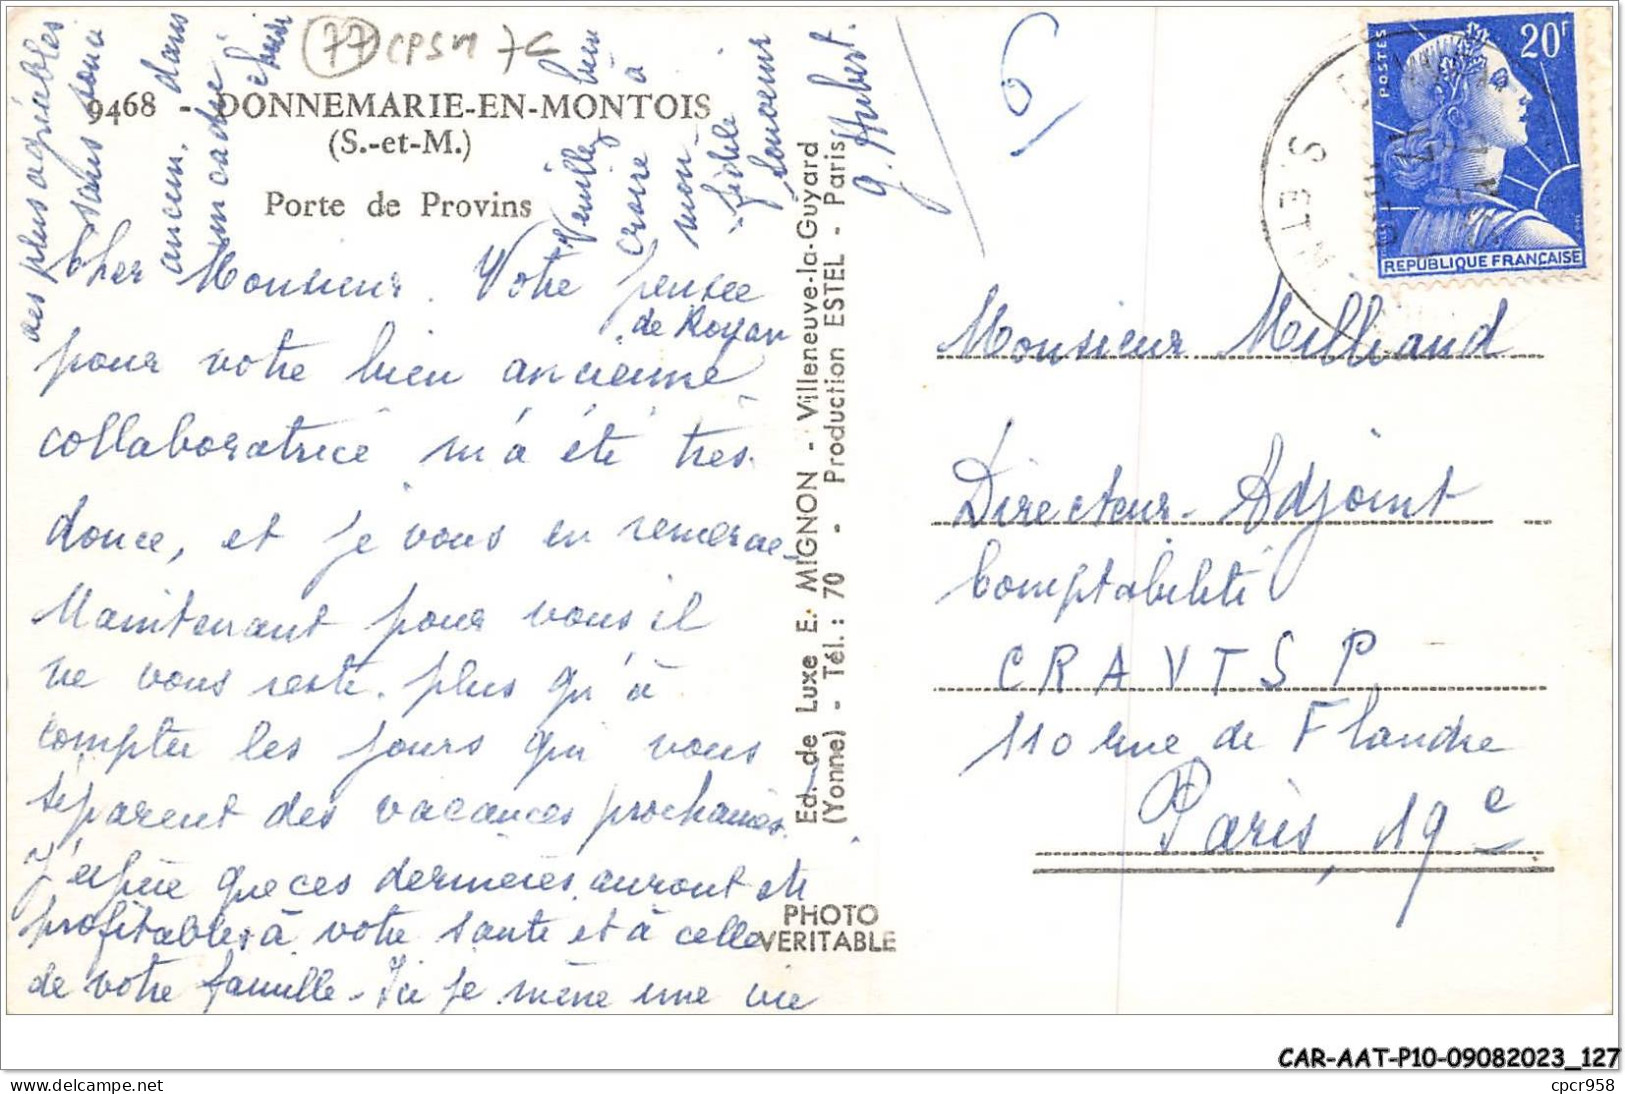 77 CPSM 7C
9468 - DONNEMARIE-EN-MONTOIS
(S.-et-M.)
Porte de Provins
Cher Monsieur. Votre pensée
de Royan
pour votre bien ancienne
collaboratrice m'a été très
douce, et je vous en remercie.
Maintenant pour vous il
ne vous reste plus qu'à
compter les jours qui vous
séparent des vacances prochaines.
J'espère que ces dernières auront été
profitables à votre santé et à celle
de votre famille - Ici je mène une vie
des plus agréables
sans souci
ancien, dans
un cadre
Veuillez bien
croire à
mon
fidèle
souvenir
G. Hubert.
Ed. de Luxe E. MIGNON - Villeneuve-la-Guyard
(Yonne) - Tél. : 70 - Production ESTEL - Paris
PHOTO
VERITABLE
POSTES
20F
REPUBLIQUE FRANÇAISE
S. ET M.
Monsieur Milliand
Directeur-Adjoint
Comptabilité
C R A V T S P
110 rue de Flandre
Paris, 19e
CAR-AAT-P10-09082023_127
delcampe.net
cpcr958